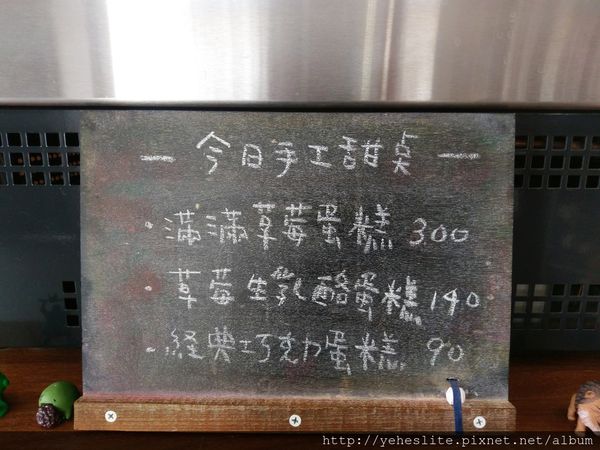 — 今日手工甜点 —
·滿滿草莓蛋糕 300
·草莓生乳酪蛋糕 140
·経典巧克力蛋糕 90
http://yeheslite.pixnet.net/album